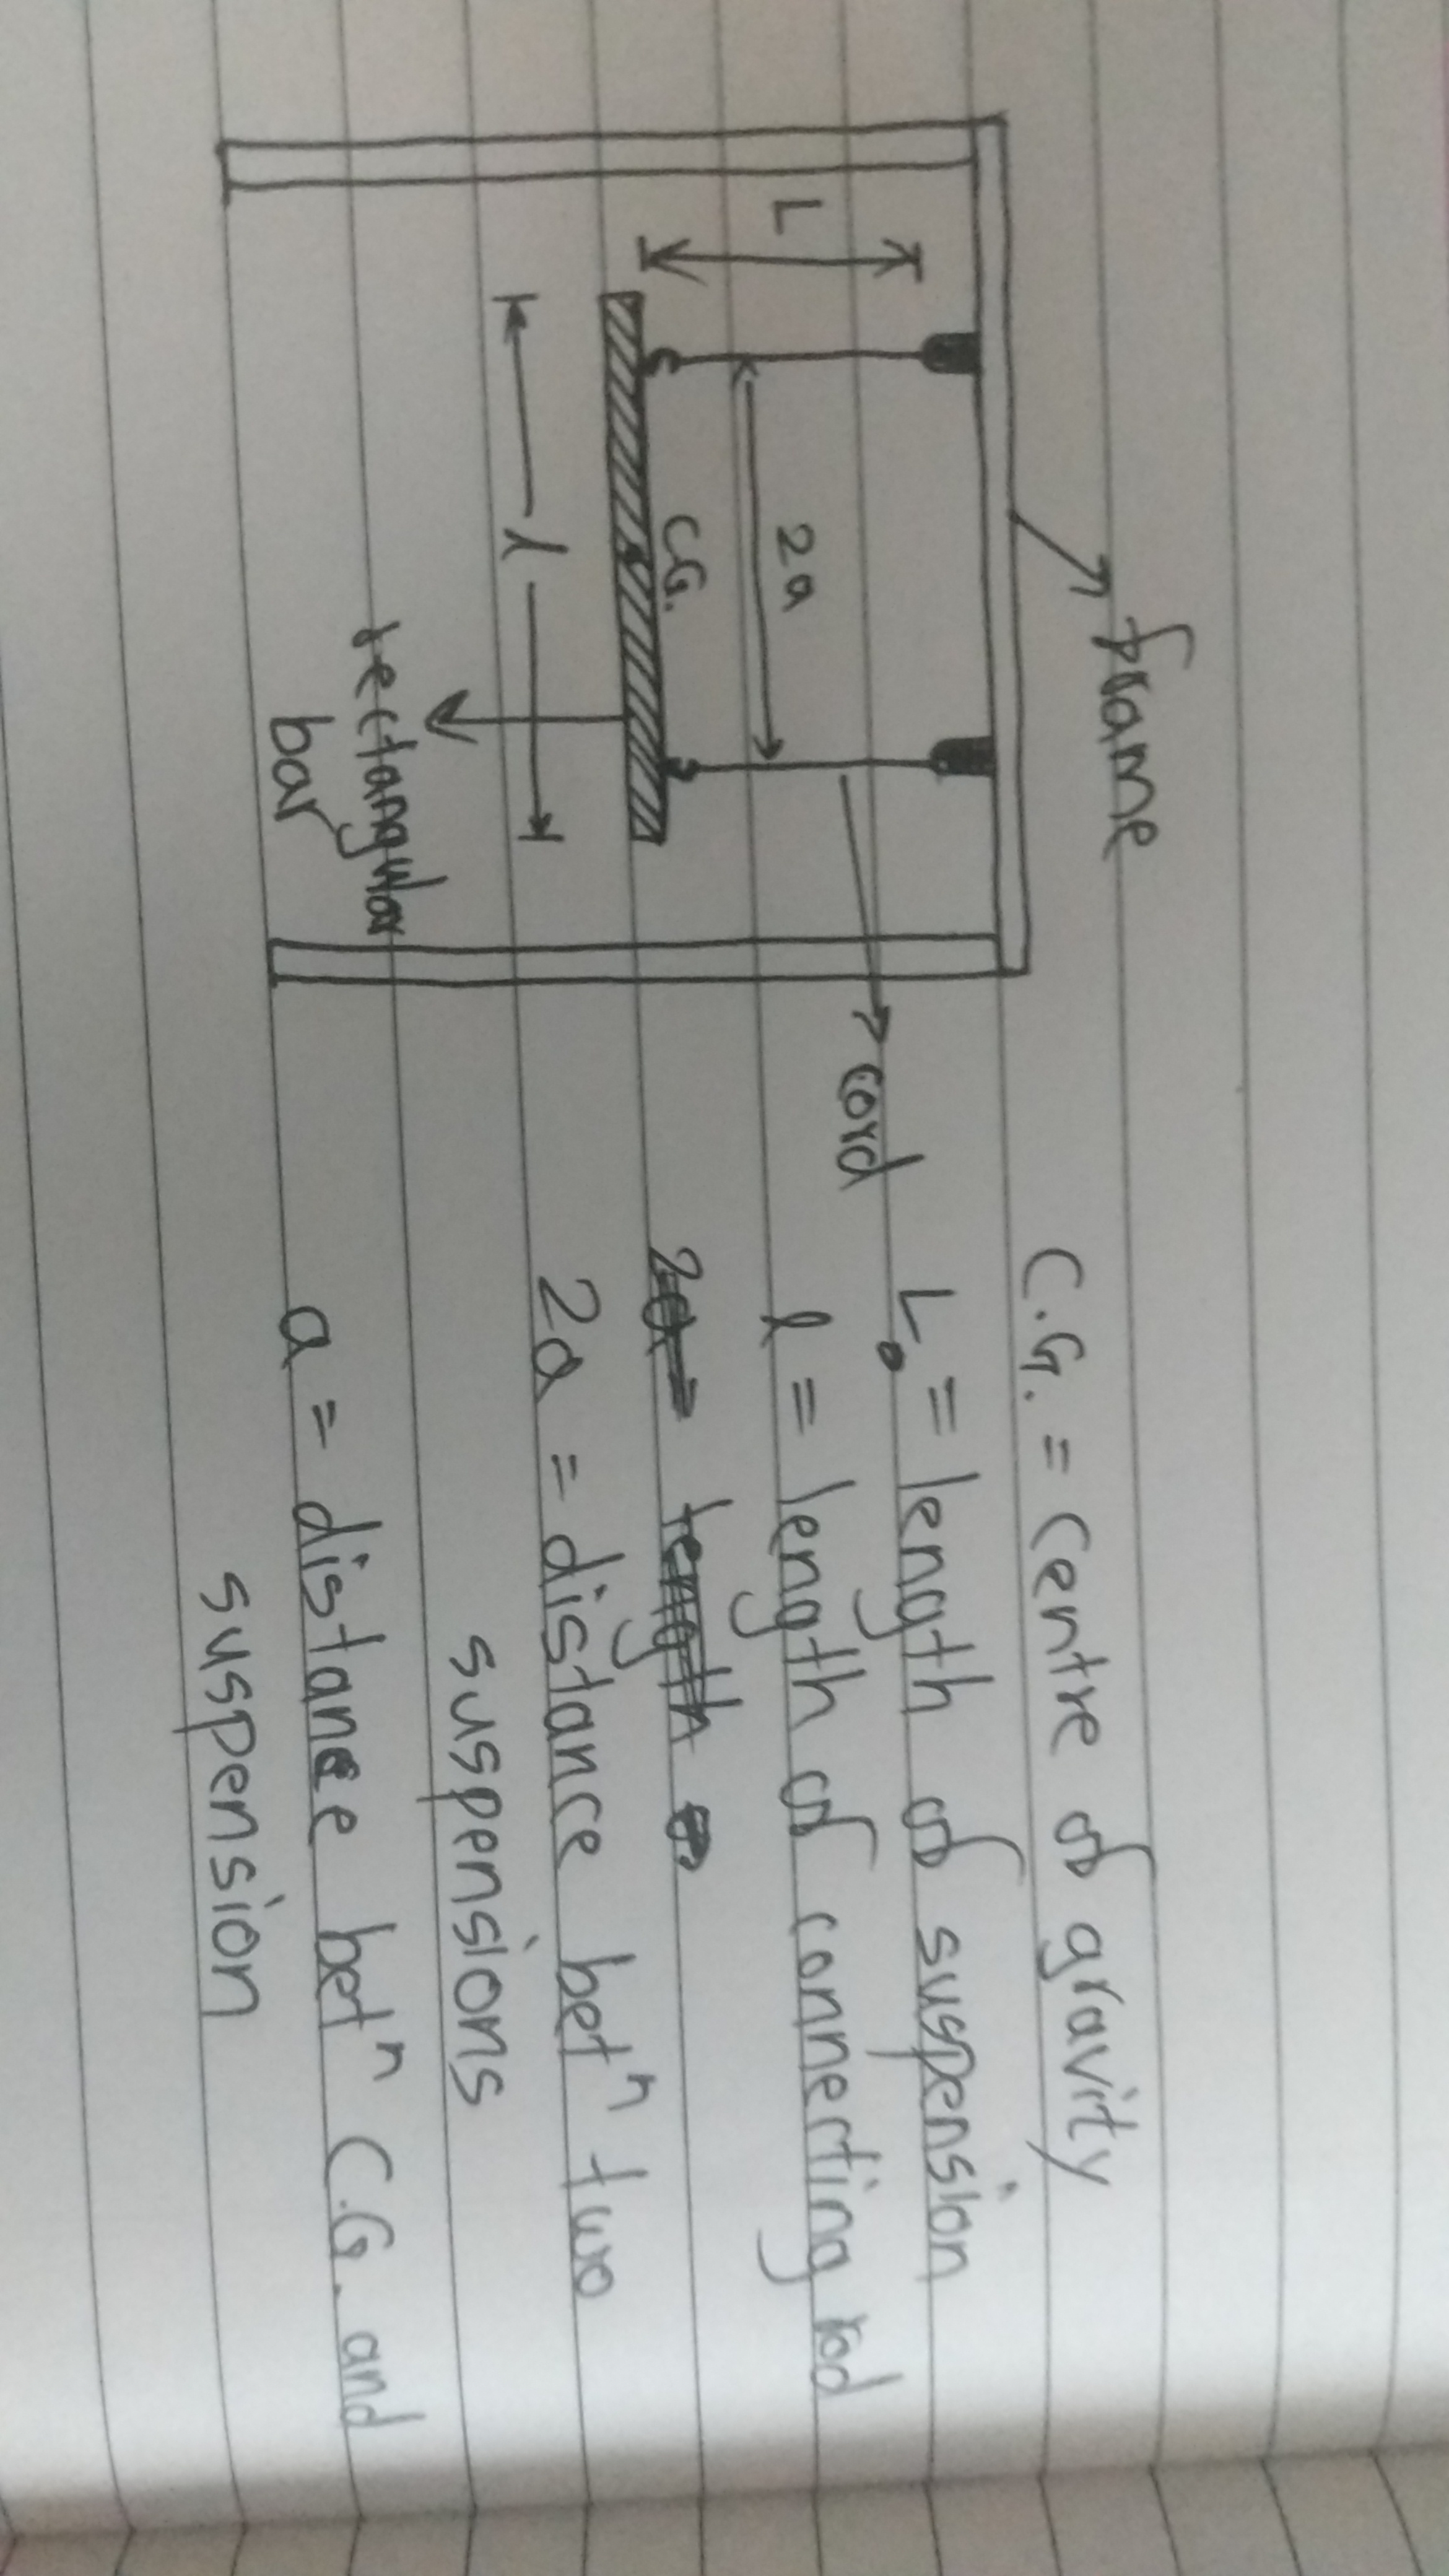 frame
L
2a
C.G.
cord
l
rectangular
bar
C.G. = Centre of gravity
L = length of suspension
l = length of connecting rod
2a = distance betⁿ two
suspensions
a = distance betⁿ C.G. and
suspension